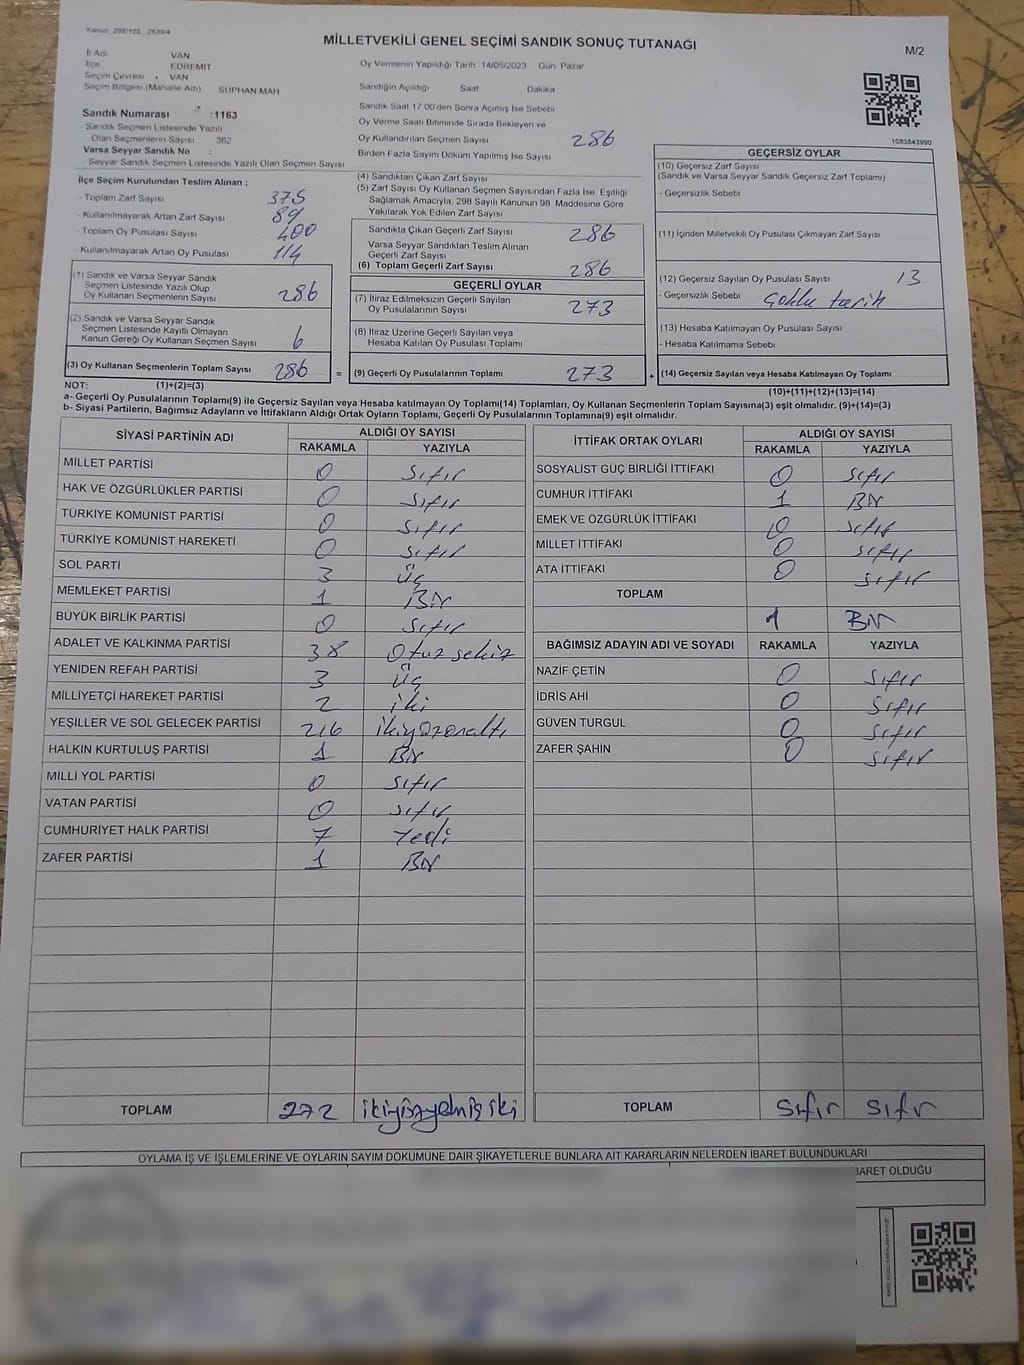 Kanun: 298/105 , 2839/4
MİLLETVEKİLİ GENEL SEÇİMİ SANDIK SONUÇ TUTANAĞI
M/2
İl Adı VAN
İlçe EDREMİT
Seçim Çevresi VAN
Seçim Bölgesi (Mahalle Adı) SUPHAN MAH
Sandık Numarası :1163
Sandık Seçmen Listesinde Yazılı
Olan Seçmenlerin Sayısı 362
Varsa Seyyar Sandık No :
- Seyyar Sandık Seçmen Listesinde Yazılı Olan Seçmen Sayısı
Oy Vermenin Yapıldığı Tarih 14/05/2023 Gün: Pazar
Sandığın Açıldığı Saat Dakika
Sandık Saat 17:00'den Sonra Açılmış İse Sebebi
Oy Verme Saati Bitiminde Sırada Bekleyen ve
Oy Kullandırılan Seçmen Sayısı 286
Birden Fazla Sayım Döküm Yapılmış İse Sayısı
1083843990
İlçe Seçim Kurulundan Teslim Alınan ;
- Toplam Zarf Sayısı 375
- Kullanılmayarak Artan Zarf Sayısı 89
- Toplam Oy Pusulası Sayısı 400
- Kullanılmayarak Artan Oy Pusulası 114
(1) Sandık ve Varsa Seyyar Sandık
Seçmen Listesinde Yazılı Olup
Oy Kullanan Seçmenlerin Sayısı 286
(2) Sandık ve Varsa Seyyar Sandık
Seçmen Listesinde Kayıtlı Olmayan
Kanun Gereği Oy Kullanan Seçmen Sayısı 6
(3) Oy Kullanan Seçmenlerin Toplam Sayısı 286 =
(4) Sandıktan Çıkan Zarf Sayısı
(5) Zarf Sayısı Oy Kullanan Seçmen Sayısından Fazla İse, Eşitliği
Sağlamak Amacıyla, 298 Sayılı Kanunun 98. Maddesine Göre
Yakılarak Yok Edilen Zarf Sayısı
Sandıkta Çıkan Geçerli Zarf Sayısı 286
Varsa Seyyar Sandıktan Teslim Alınan
Geçerli Zarf Sayısı
(6) Toplam Geçerli Zarf Sayısı 286
GEÇERLİ OYLAR
(7) İtiraz Edilmeksizin Geçerli Sayılan
Oy Pusulalarının Sayısı 273
(8) İtiraz Üzerine Geçerli Sayılan veya
Hesaba Katılan Oy Pusulası Toplamı
(9) Geçerli Oy Pusulalarının Toplamı 273 +
GEÇERSİZ OYLAR
(10) Geçersiz Zarf Sayısı
(Sandık ve Varsa Seyyar Sandık Geçersiz Zarf Toplamı)
- Geçersizlik Sebebi
(11) İçinden Milletvekili Oy Pusulası Çıkmayan Zarf Sayısı
(12) Geçersiz Sayılan Oy Pusulası Sayısı 13
- Geçersizlik Sebebi
(13) Hesaba Katılmayan Oy Pusulası Sayısı
- Hesaba Katılmama Sebebi
(14) Geçersiz Sayılan veya Hesaba Katılmayan Oy Toplamı
NOT: (1)+(2)=(3) (10)+(11)+(12)+(13)=(14)
a- Geçerli Oy Pusulalarının Toplamı(9) ile Geçersiz Sayılan veya Hesaba katılmayan Oy Toplamı(14) Toplamları, Oy Kullanan Seçmenlerin Toplam Sayısına(3) eşit olmalıdır. (9)+(14)=(3)
b- Siyasi Partilerin, Bağımsız Adayların ve İttifakların Aldığı Ortak Oyların Toplamı, Geçerli Oy Pusulasının Toplamına(9) eşit olmalıdır.
SİYASİ PARTİNİN ADI ALDIĞI OY SAYISI
RAKAMLA YAZIYLA
MİLLET PARTİSİ 0 sıfır
HAK VE ÖZGÜRLÜKLER PARTİSİ 0 sıfır
TÜRKİYE KOMÜNİST PARTİSİ 0 sıfır
TÜRKİYE KOMÜNİST HAREKETİ 0 sıfır
SOL PARTİ 3 üç
MEMLEKET PARTİSİ 1 Bir
BÜYÜK BİRLİK PARTİSİ 0 sıfır
ADALET VE KALKINMA PARTİSİ 38 otuz sekiz
YENİDEN REFAH PARTİSİ 3 üç
MİLLİYETÇİ HAREKET PARTİSİ 2 iki
YEŞİLLER VE SOL GELECEK PARTİSİ 216 ikiyüzonaltı
HALKIN KURTULUŞ PARTİSİ 1 Bir
MİLLİ YOL PARTİSİ 0 sıfır
VATAN PARTİSİ 0 sıfır
CUMHURİYET HALK PARTİSİ 7 Yedi
ZAFER PARTİSİ 1 Bir
TOPLAM 272 ikiyüzyetmiş iki
İTTİFAK ORTAK OYLARI ALDIĞI OY SAYISI
RAKAMLA YAZIYLA
SOSYALİST GÜÇ BİRLİĞİ İTTİFAKI 0 sıfır
CUMHUR İTTİFAKI 1 Bir
EMEK VE ÖZGÜRLÜK İTTİFAKI 0 sıfır
MİLLET İTTİFAKI 0 sıfır
ATA İTTİFAKI 0 sıfır
TOPLAM
1 Bir
BAĞIMSIZ ADAYIN ADI VE SOYADI RAKAMLA YAZIYLA
NAZİF ÇETİN 0 sıfır
İDRİS AHİ 0 sıfır
GÜVEN TURGUL 0 sıfır
ZAFER ŞAHİN 0 sıfır
TOPLAM sıfır sıfır
OYLAMA İŞ VE İŞLEMLERİNE VE OYLARIN SAYIM DÖKÜMÜNE DAİR ŞİKAYETLERLE BUNLARA AİT KARARLARIN NELERDEN İBARET BULUNDUKLARI
BARET OLDUĞU